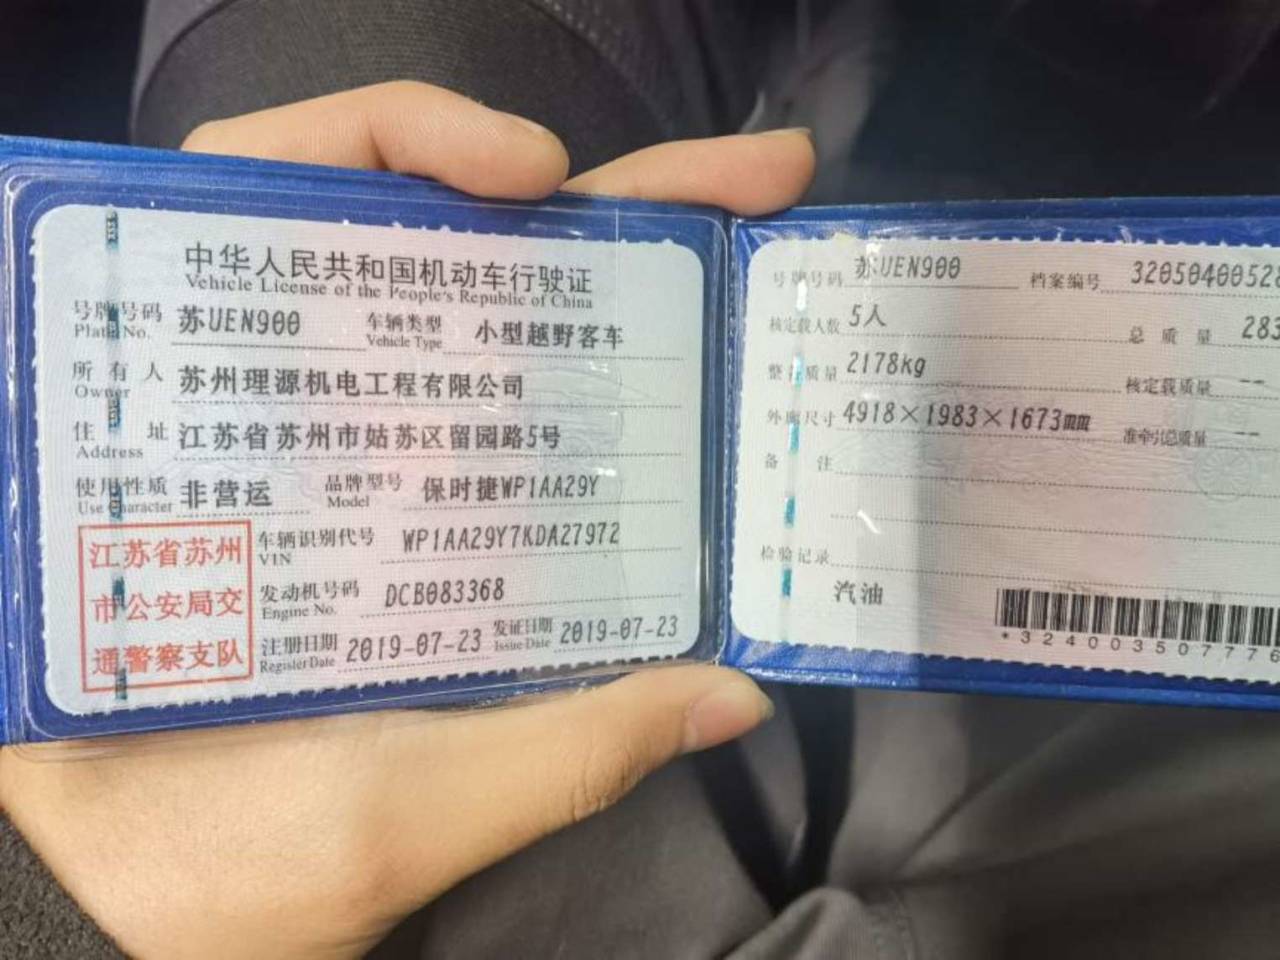 中华人民共和国机动车行驶证
Vehicle License of the People's Republic of China
号牌号码 苏UEN900 车辆类型 小型越野客车
Plate No. Vehicle Type
所有人 苏州理源机电工程有限公司
Owner
住址 江苏省苏州市姑苏区留园路5号
Address
使用性质 非营运 品牌型号 保时捷WP1AA29Y
Use Character Model
江苏省苏州
市公安局交
通警察支队
车辆识别代号 WP1AA29Y7KDA27972
VIN
发动机号码 DCB083368
Engine No.
注册日期 2019-07-23 发证日期 2019-07-23
Register Date Issue Date
号牌号码 苏UEN900 档案编号 32050400528
核定载人数 5人 总质量 283
整备质量 2178kg 核定载质量 --
外廓尺寸 4918×1983×1673mm 准牵引总质量 --
备注
检验记录
汽油
*324003507776